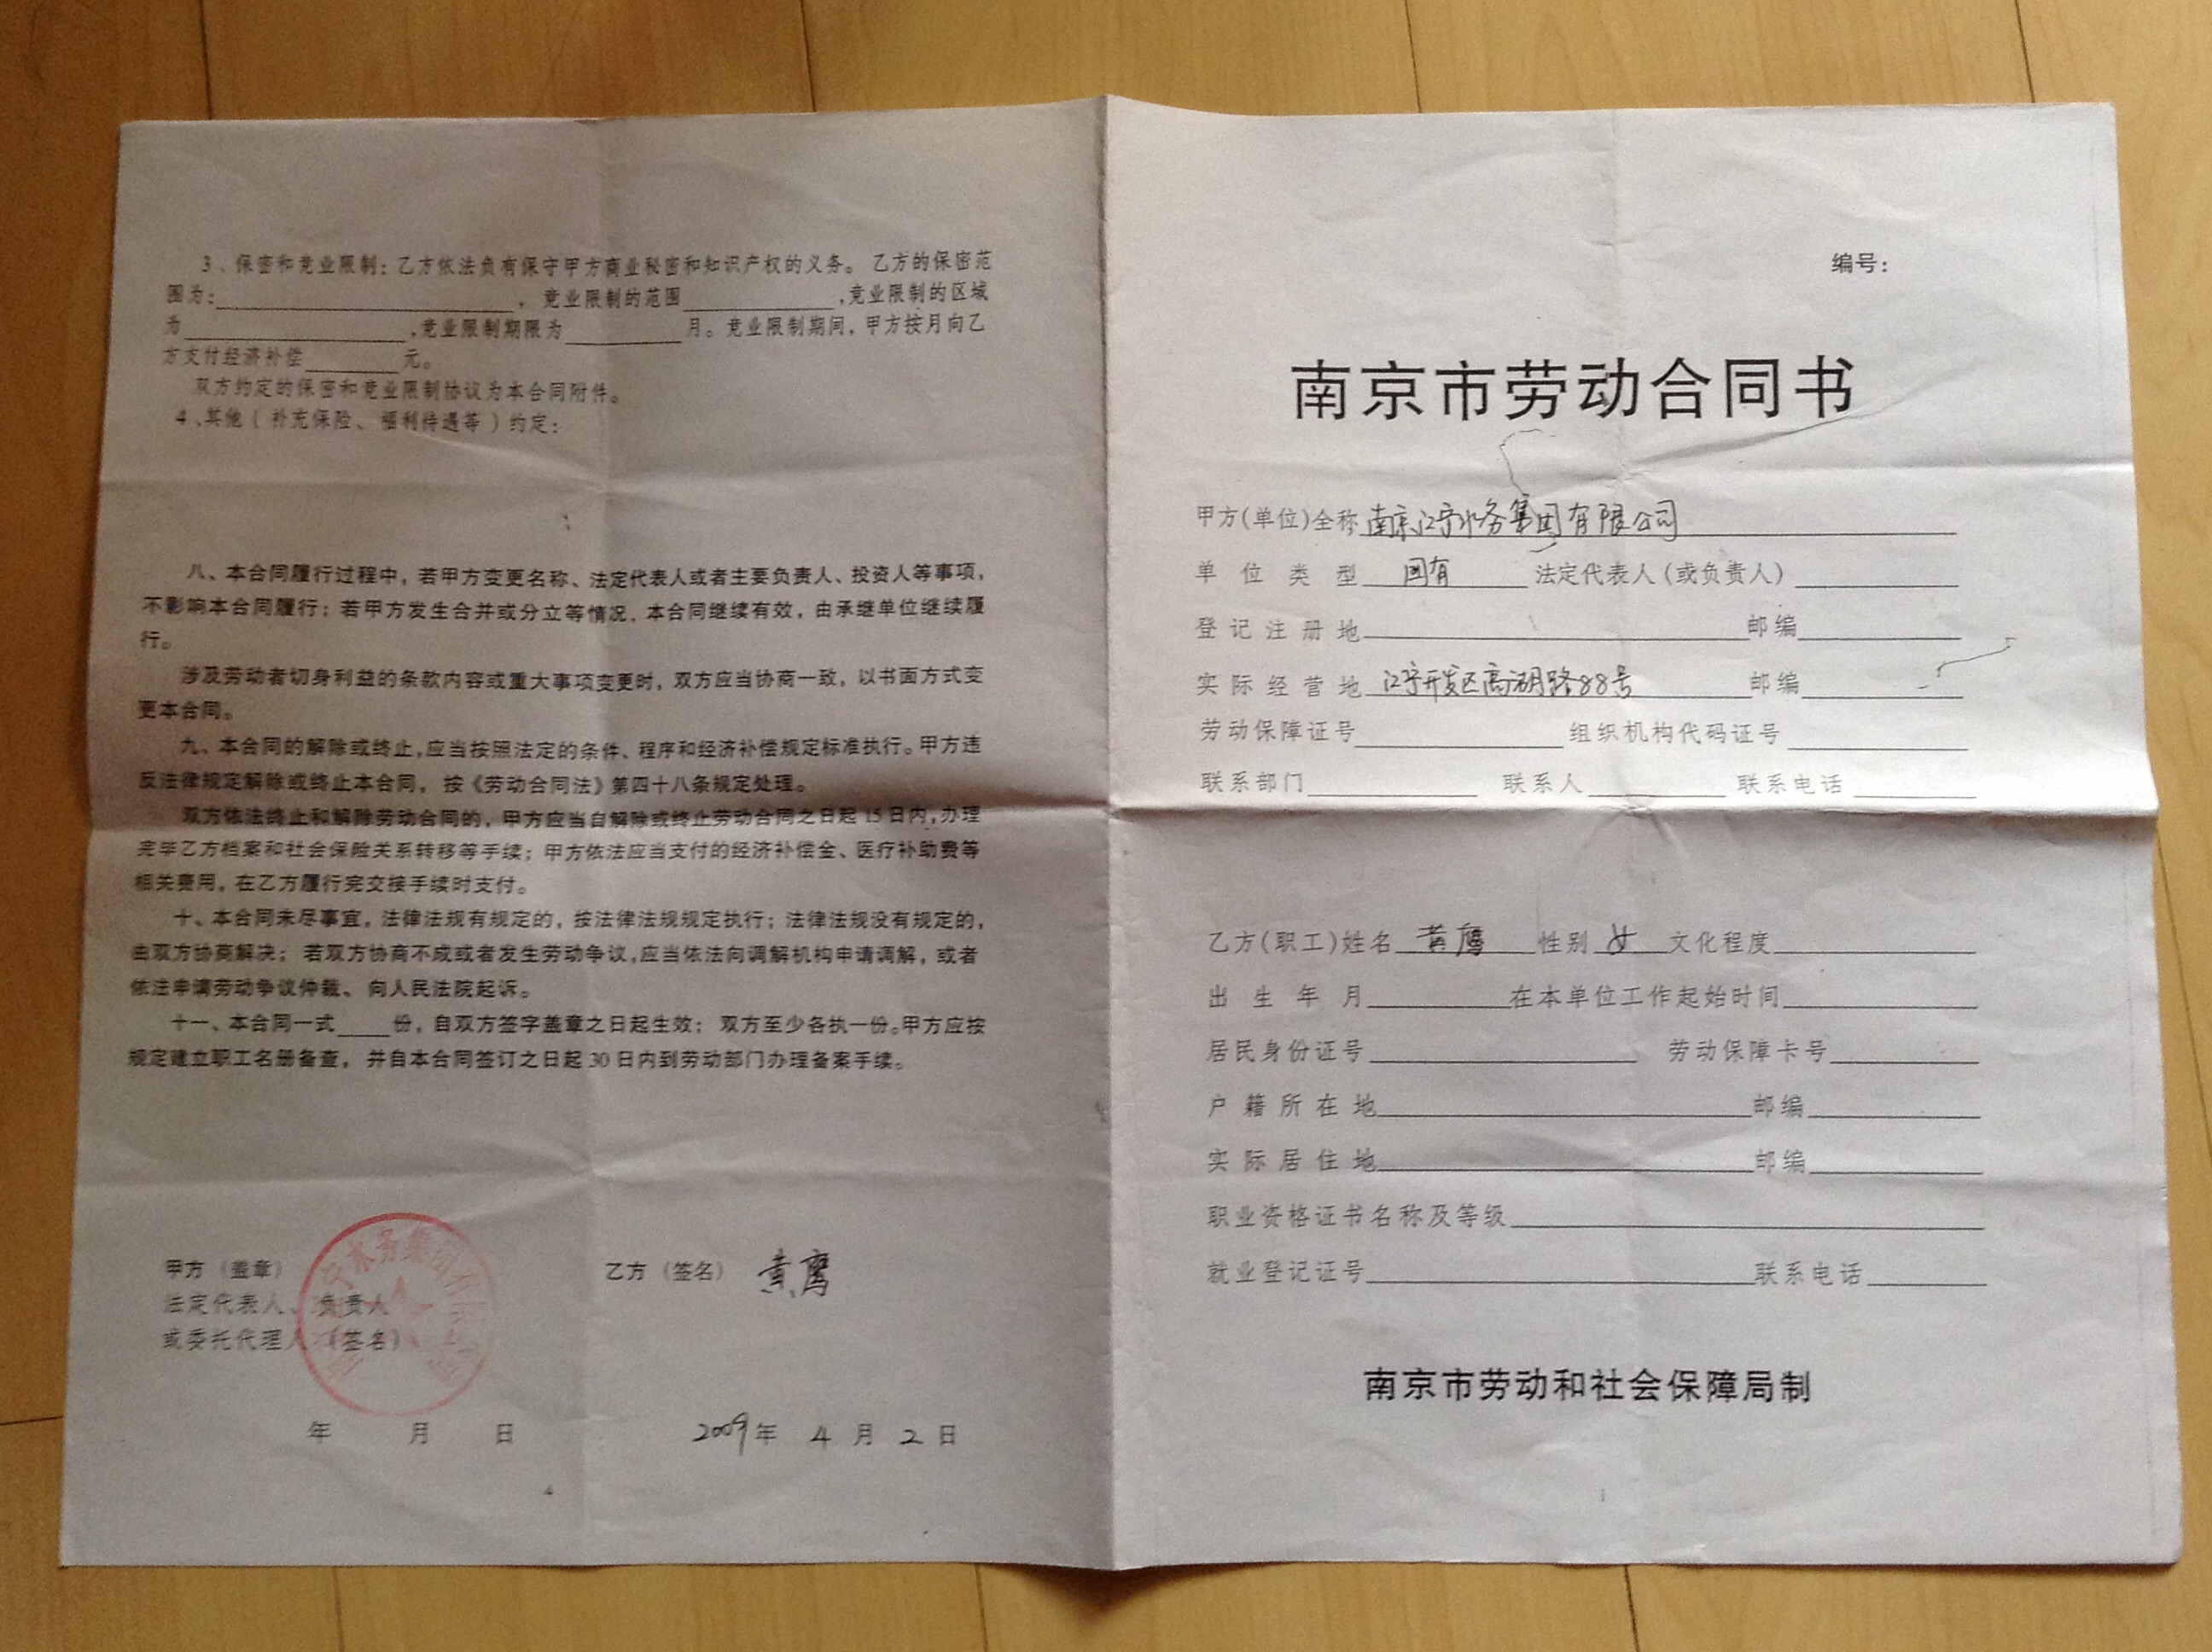 3、保密和竞业限制：乙方依法负有保守甲方商业秘密和知识产权的义务。乙方的保密范
围为：，竞业限制的范围，竞业限制的区域
为，竞业限制期限为月。竞业限制期间，甲方按月向乙
方支付经济补偿元。
双方约定的保密和竞业限制协议为本合同附件。
4、其他（补充保险、福利待遇等）约定：
八、本合同履行过程中，若甲方变更名称、法定代表人或者主要负责人、投资人等事项，
不影响本合同履行；若甲方发生合并或分立等情况，本合同继续有效，由承继单位继续履
行。
涉及劳动者切身利益的条款内容或重大事项变更时，双方应当协商一致，以书面方式变
更本合同。
九、本合同的解除或终止，应当按照法定的条件、程序和经济补偿规定标准执行。甲方违
反法律规定解除或终止本合同，按《劳动合同法》第四十八条规定处理。
双方依法终止和解除劳动合同的，甲方应当自解除或终止劳动合同之日起15日内，办理
完毕乙方档案和社会保险关系转移等手续；甲方依法应当支付的经济补偿金、医疗补助费等
相关费用，在乙方履行完交接手续时支付。
十、本合同未尽事宜，法律法规有规定的，按法律法规规定执行；法律法规没有规定的，
由双方协商解决；若双方协商不成或者发生劳动争议，应当依法向调解机构申请调解，或者
依法申请劳动争议仲裁、向人民法院起诉。
十一、本合同一式份，自双方签字盖章之日起生效；双方至少各执一份。甲方应按
规定建立职工名册备查，并自本合同签订之日起30日内到劳动部门办理备案手续。
甲方（盖章）
法定代表人、负责人
或委托代理人（签名）
年 月 日
水务集团有
乙方（签名） 黄鹰
2009年 4月 2日
4
编号：
南京市劳动合同书
甲方（单位）全称 南京江宁水务集团有限公司
单位类型 国有 法定代表人（或负责人）
登记注册地 邮编
实际经营地 江宁开发区高湖路88号 邮编
劳动保障证号 组织机构代码证号
联系部门 联系人 联系电话
乙方（职工）姓名 黄鹰 性别 女 文化程度
出生年月 在本单位工作起始时间
居民身份证号 劳动保障卡号
户籍所在地 邮编
实际居住地 邮编
职业资格证书名称及等级
就业登记证号 联系电话
南京市劳动和社会保障局制
1